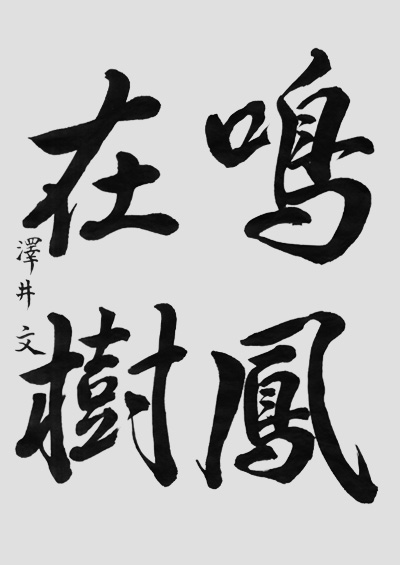 鳴鳳
在樹
澤井文